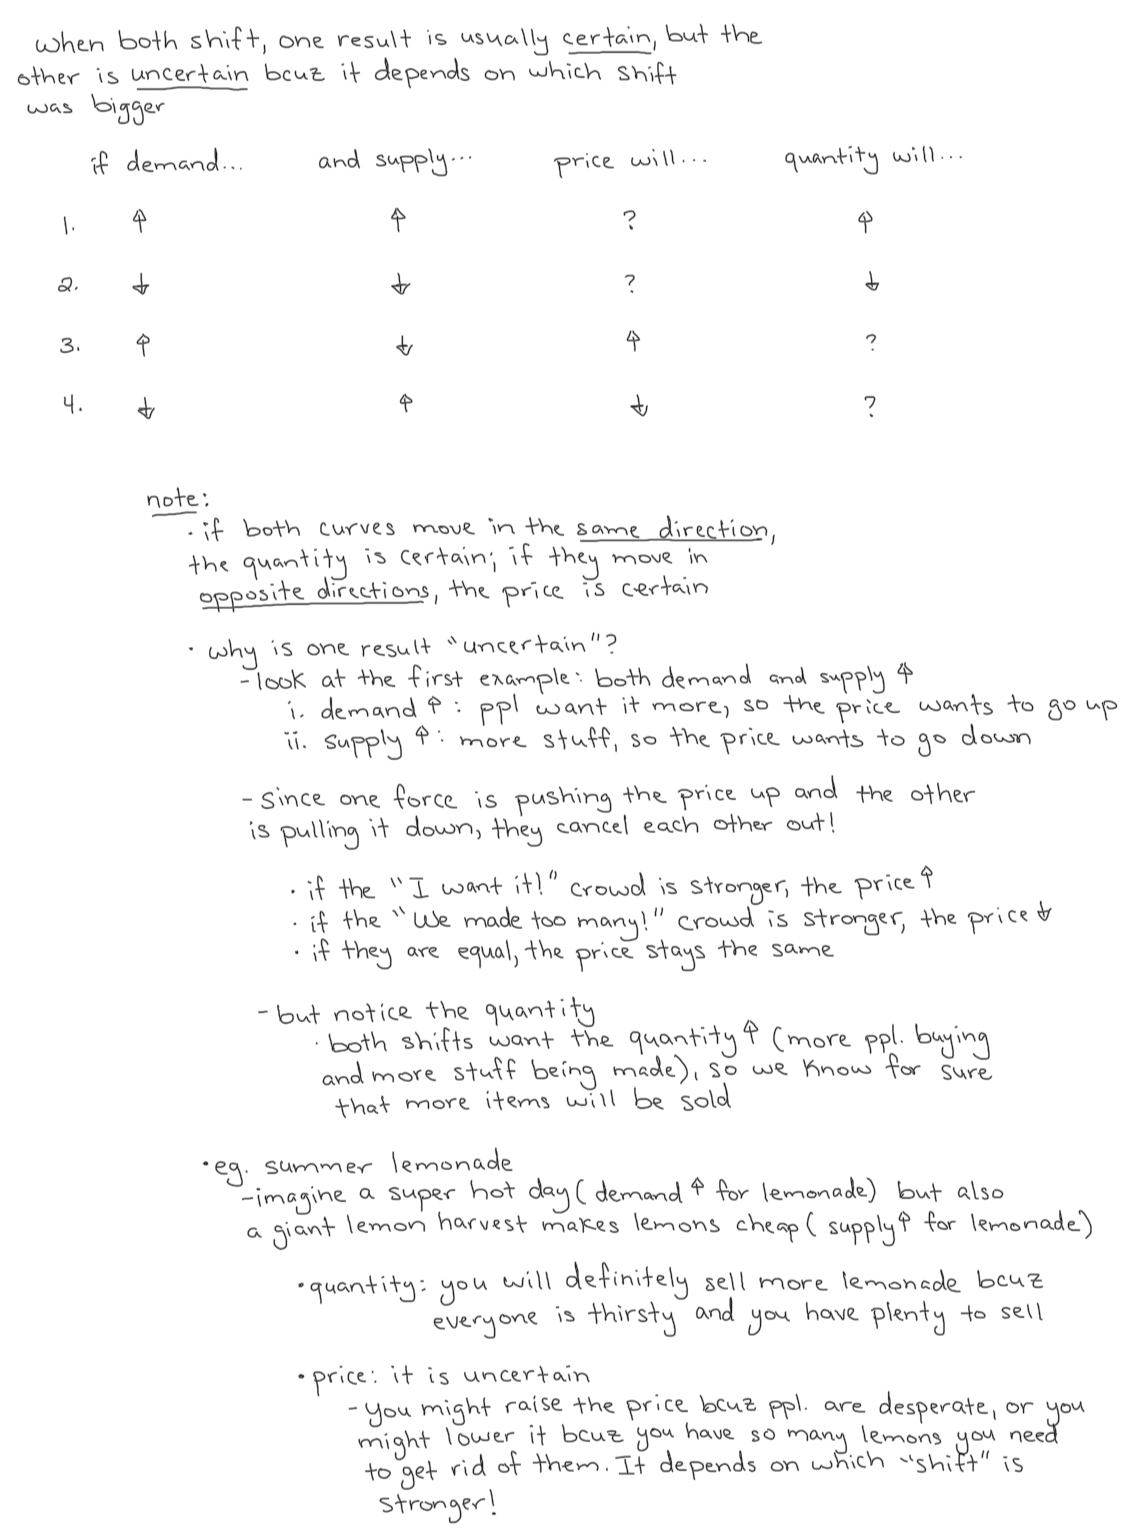 when both shift, one result is usually certain, but the
other is uncertain bcuz it depends on which shift
was bigger
if demand... and supply... price will... quantity will...
1. ↑ ↑ ? ↑
2. ↓ ↓ ? ↓
3. ↑ ↓ ↑ ?
4. ↓ ↑ ↓ ?
note:
· if both curves move in the same direction,
the quantity is certain; if they move in
opposite directions, the price is certain
· why is one result "uncertain"?
- look at the first example: both demand and supply ↑
i. demand ↑ : ppl want it more, so the price wants to go up
ii. supply ↑ : more stuff, so the price wants to go down
- since one force is pushing the price up and the other
is pulling it down, they cancel each other out!
· if the "I want it!" crowd is stronger, the price ↑
· if the "We made too many!" crowd is stronger, the price ↓
· if they are equal, the price stays the same
- but notice the quantity
· both shifts want the quantity ↑ (more ppl. buying
and more stuff being made), so we know for sure
that more items will be sold
· eg. summer lemonade
- imagine a super hot day ( demand ↑ for lemonade) but also
a giant lemon harvest makes lemons cheap ( supply ↑ for lemonade)
· quantity: you will definitely sell more lemonade bcuz
everyone is thirsty and you have plenty to sell
· price: it is uncertain
- you might raise the price bcuz ppl. are desperate, or you
might lower it bcuz you have so many lemons you need
to get rid of them. It depends on which "shift" is
stronger!